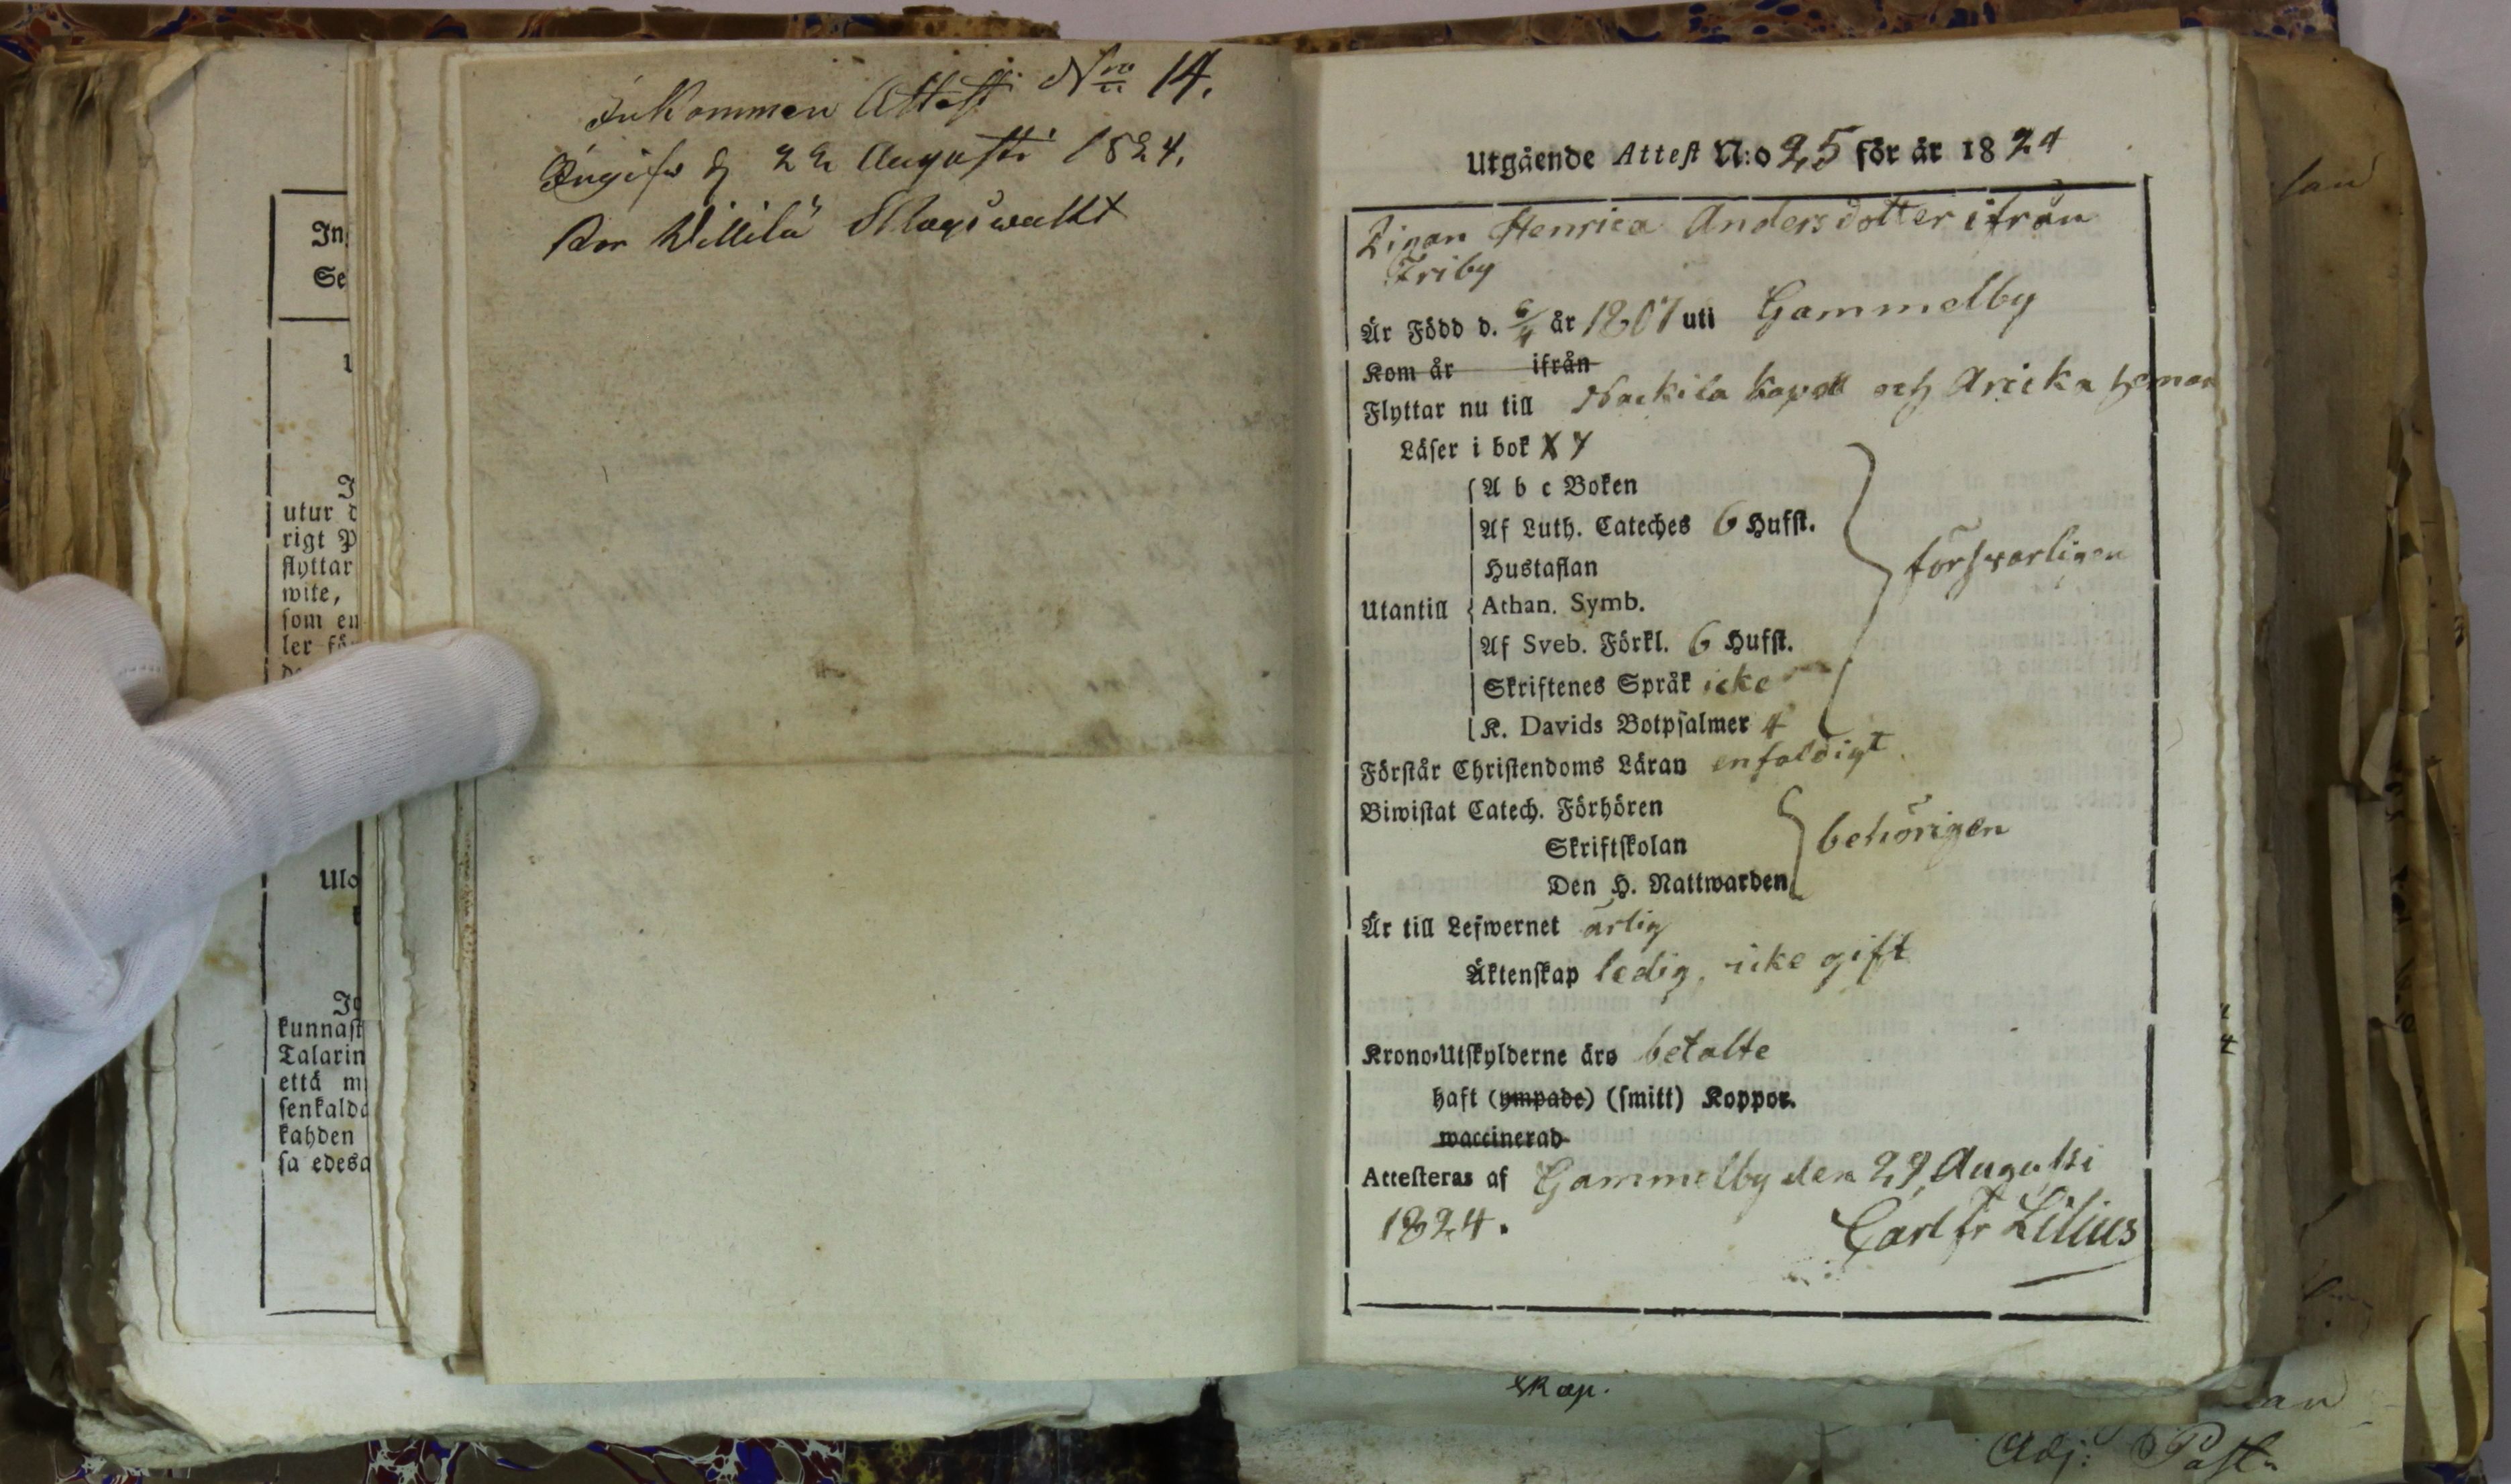 Inkommen Attest Nro 14.
Ingifw d 22 Augusti 1824.
Bor Willilä Skogswakt
In
Se
utur d
rigt P
flyttar
wite,
som en
ler för
Ulo
kunnast
Talarin
että m
senkald
kahden
sa edesa
Utgående Attest N:o 25 för år 1824
Pigan Henrica Andersdotter ifrån
Friby
Är Född d. 6/4 år 1807 uti Gammelby
Kom år ifrån
Flyttar nu till Nackila Kapell och Aricka heman
Läser i bok X 7
A b c Boken
Af Luth. Cateches 6 Hufst.
Hustaflan
försvarligen
Utantill Athan. Symb.
Af Sveb. Förkl. 6 Hufst.
Skriftenes Språk icke
K. Davids Botpsalmer 4
Förstår Christendoms Läran enfaldigt.
Biwistat Catech. Förhören
Skriftskolan behörigen
Den H. Nattwarden
Är till Lefwernet ärlig
Äktenskap ledig, icke gift
Krono-Utskylderne äro betalte
haft (ympade) (smitt) Koppor.
waccinerad
Attesteras af Gammelby den 29 Augusti
1824. Carl Fr Lilius
skap.
Adj: Past.